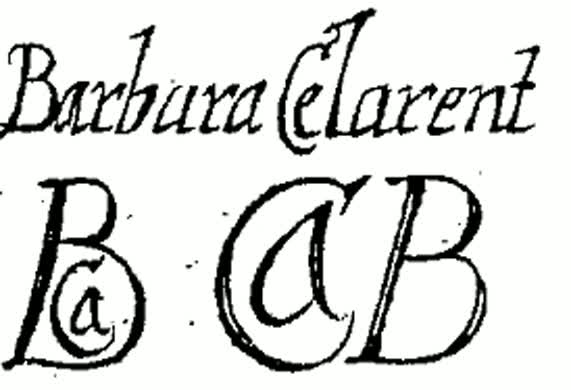 Barbara Celarent
BCa CaB